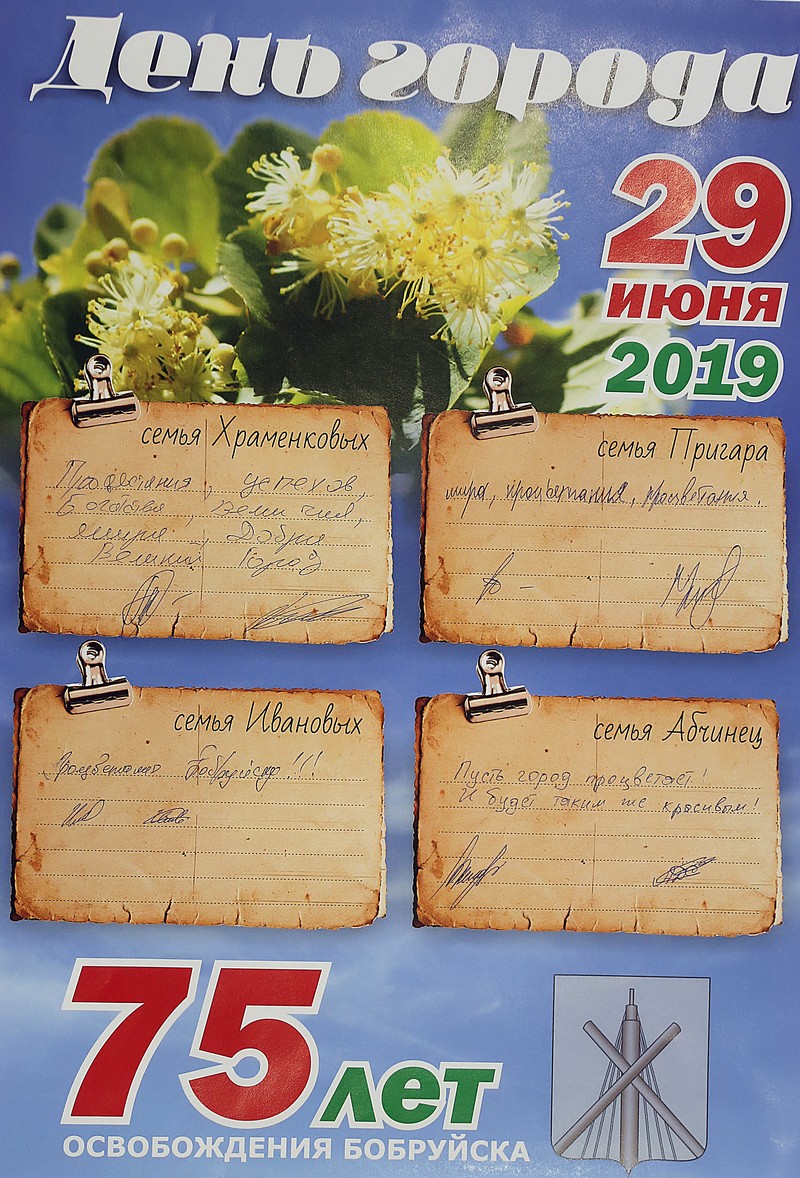 День города
29
июня
2019
семья Храменковых
Процветания, успехов,
богатства, величия,
мира, Добра
Великий Город
семья Пригара
мира, процветания, процветания.
семья Ивановых
Процветания Бобруйску!!!
семья Абчинец
Пусть город процветает!
И будет таким же красивым!
75 лет
ОСВОБОЖДЕНИЯ БОБРУЙСКА